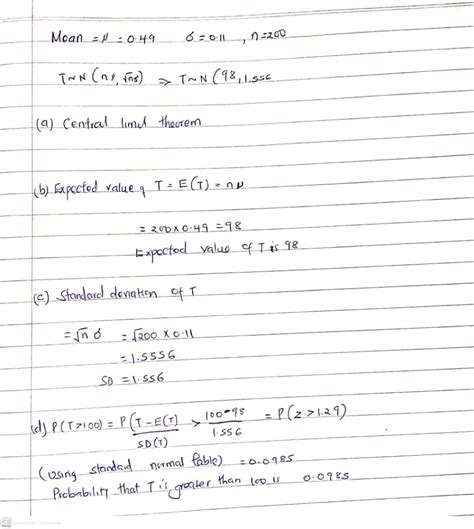 Mean = μ = 0.49   σ = 0.11 , n=200
T~N (nμ, √nσ) ⇒ T~N (98, 1.556
(a) Central limit theorem
(b) Expected value of T = E(T) = nμ
= 200×0.49 = 98
Expected value of T is 98
(c) Standard deviation of T
= √n σ = √200 × 0.11
= 1.5556
SD = 1.556
(d) P(T>100) = P(T-E(T)/SD(T) > 100-98/1.556 = P(z > 1.29)
(using standard normal table) = 0.0985
Probability that T is greater than 100 is 0.0985